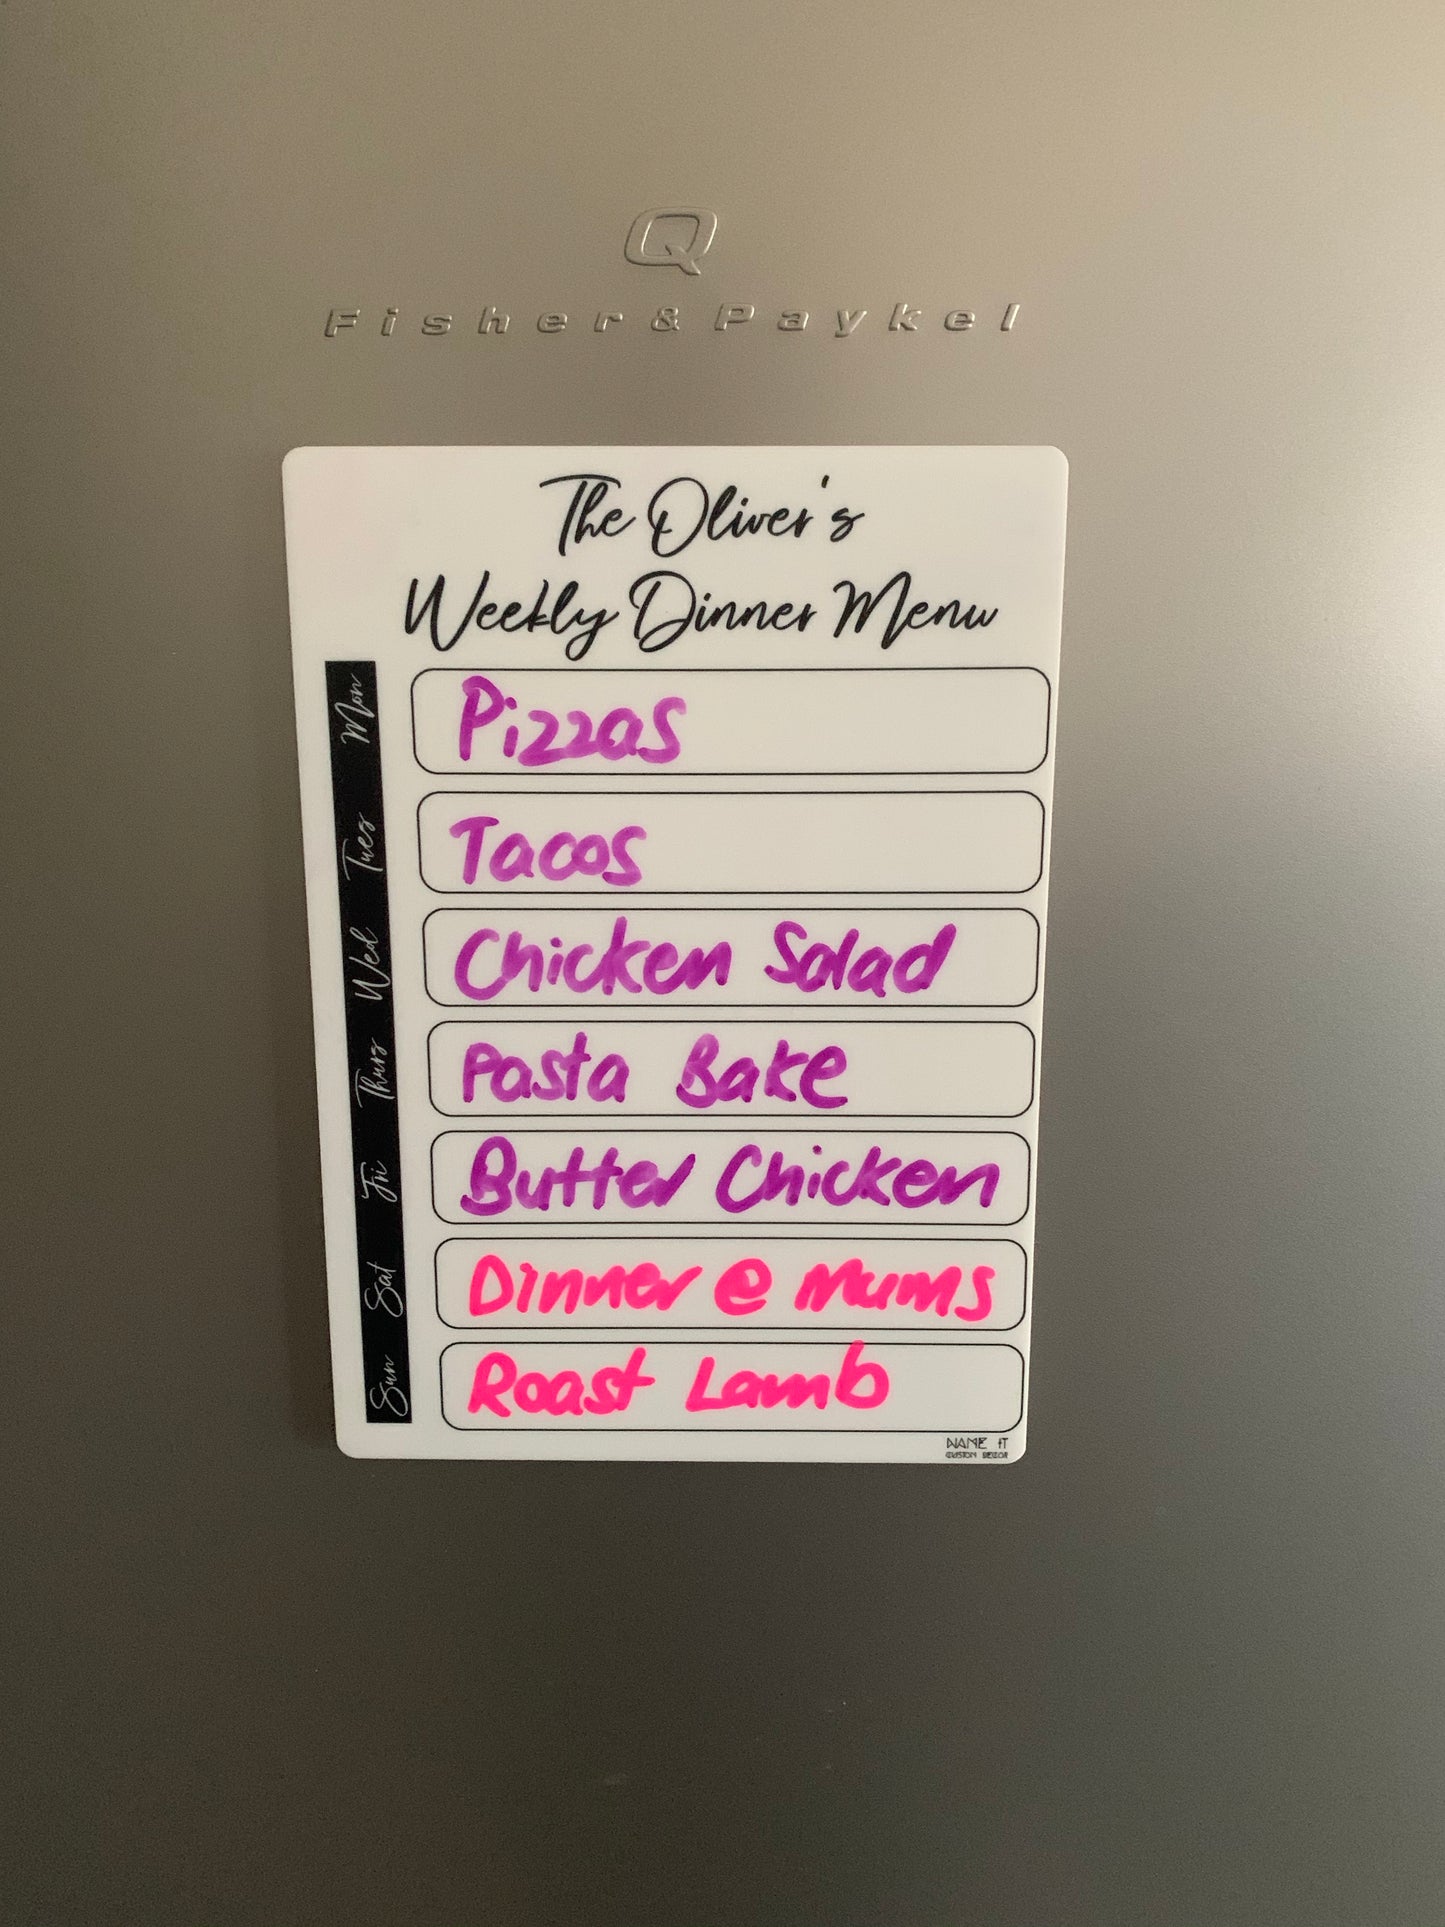 Q
Fisher&Paykel
The Oliver's
Weekly Dinner Menu
Mon
Pizzas
Tues
Tacos
Wed
Chicken Salad
Thurs
Pasta Bake
Fri
Butter Chicken
Sat
Dinner @ Mums
Sun
Roast Lamb
NAME IT
CUSTOM DECOR